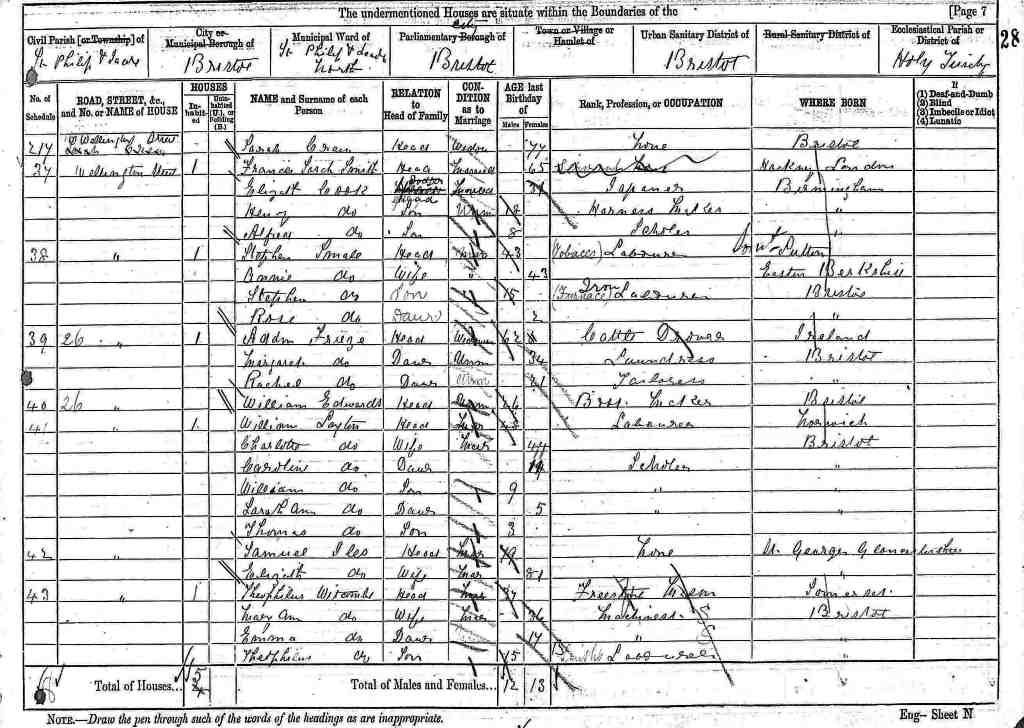 The undermentioned Houses are situate within the Boundaries of the [Page 7
Civil Parish [or Township] of City or Municipal Borough of Municipal Ward of City Parliamentary Borough of Town or Village or Hamlet of Urban Sanitary District of Rural Sanitary District of Ecclesiastical Parish or District of 28
St Philip & Jacob Bristol St Philip & Jacob North Bristol Bristol Holy Trinity
No. of Schedule ROAD, STREET, &c., and No. or NAME of HOUSE HOUSES Inhabited Uninhabited (U.), or Building (B.) NAME and Surname of each Person RELATION to Head of Family CONDITION as to Marriage AGE last Birthday of Males Females Rank, Profession, or OCCUPATION WHERE BORN If (1) Deaf-and-Dumb (2) Blind (3) Imbecile or Idiot (4) Lunatic
217 Wellington Street Sarah Head Widow 74 None Bristol
37 Wellington Street 1 Frances Sarah Smith Head Married 65 Hackney London
Elizath Cook Lodger Japaner Birmingham
Henry do Son Unm 18 Harness Maker "
Alfred do Son 8 Scholar "
38 " 1 Stephen Smale Head Mar 43 (Tobacco) Labourer
Annie do Wife 43 Easton Berkshire
Stephen do Son 15 Iron (Furnace) Labourer Bristol
Rose do Daur 2 "
39 26 " 1 Adam Head Widower 62 Cattle Drover Ireland
Margaret do Daur Unm 34 Laundress Bristol
Rachel do Daur Unm 21 Tailoress "
40 26 " William Edwards Head 26 Maker Bristol
41 " 1 William Head Mar Labourer Norwich
Charlotte do Wife Mar 44 Bristol
Caroline do Daur Scholar "
William do Son 9 " "
Sarah Ann do Daur 5
Thomas do Son 3
42 " Samuel Iles Head Mar 79 None St Georges Gloucestershire
Elizath do Wife Mar 81 "
43 " 1 Theophilus Witcombe Head Mar 37 Freestone Mason Somerset
Mary Ann do Wife Mar 36 Bristol
Emma do Daur 17 " "
Theophilus do Son 15 Labourer "
6 Total of Houses... 5 Total of Males and Females... 12 13
NOTE.—Draw the pen through such of the words of the headings as are inappropriate. Eng—Sheet N